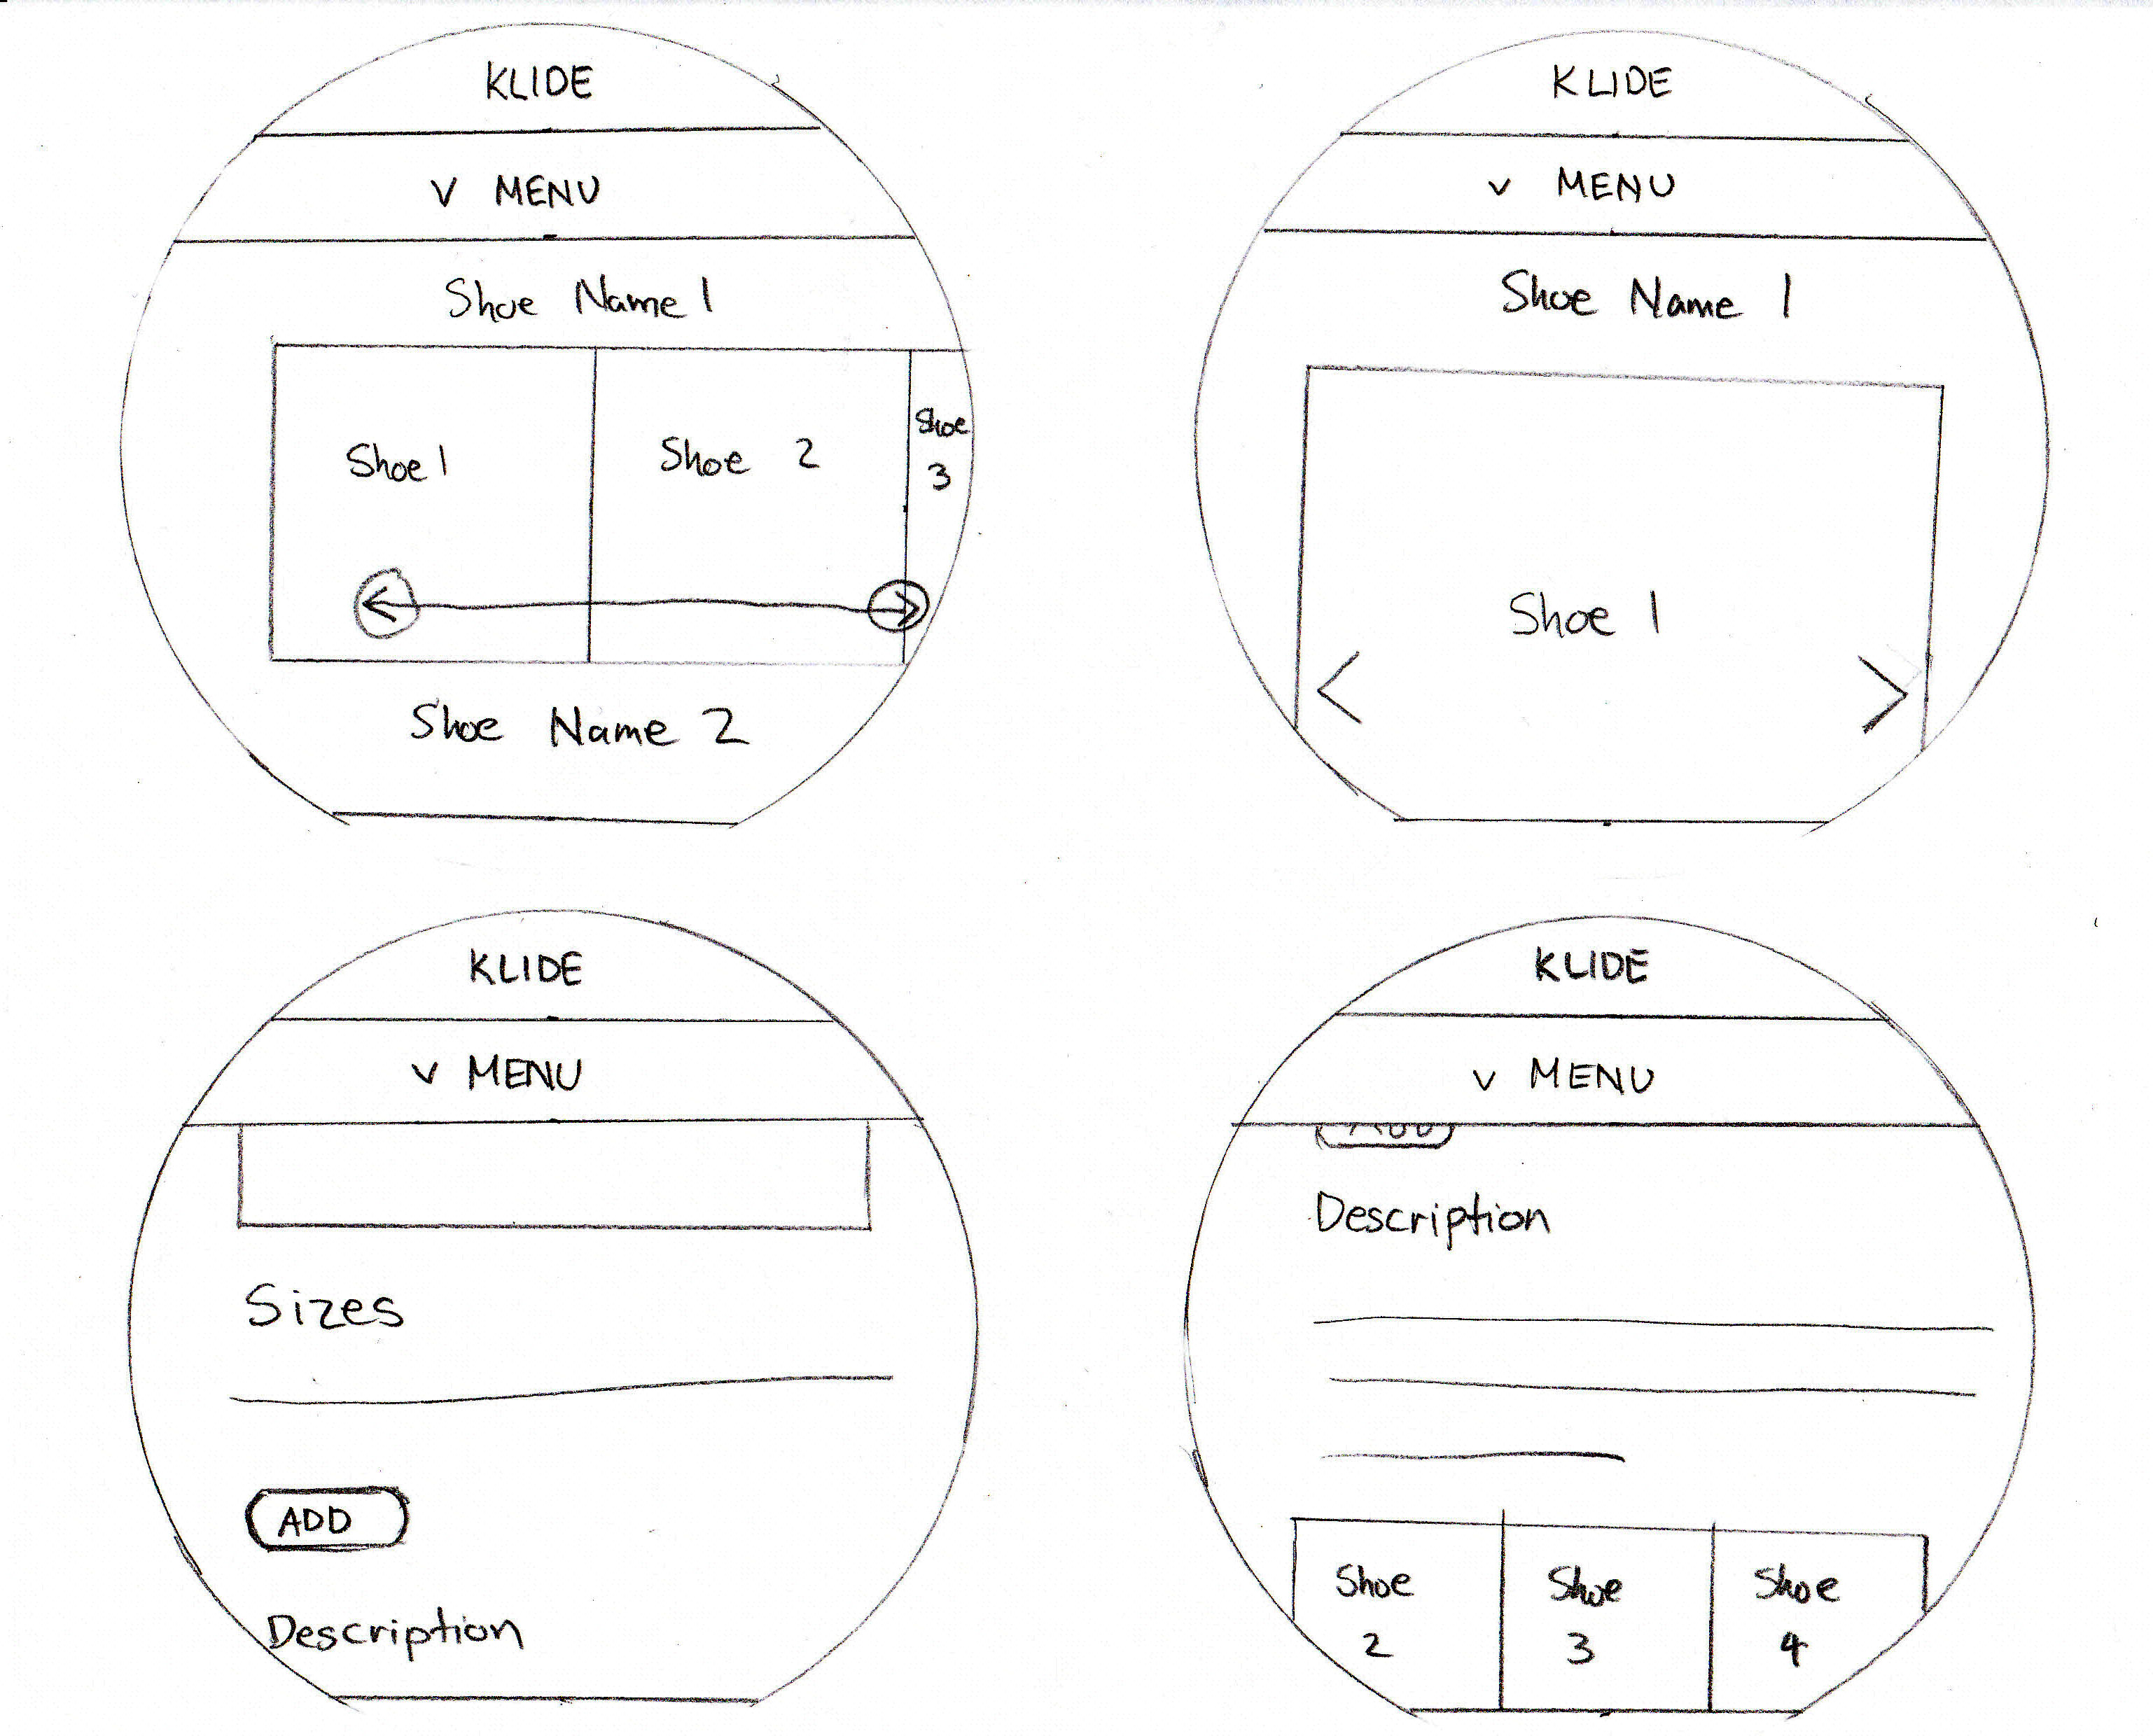 KLIDE
V MENU
Shoe Name 1
Shoe 1
Shoe 2
Shoe
3
Shoe Name 2
KLIDE
v MENU
Shoe Name 1
Shoe 1
KLIDE
v MENU
Sizes
ADD
Description
KLIDE
v MENU
ADD
Description
Shoe
2
Shoe
3
Shoe
4